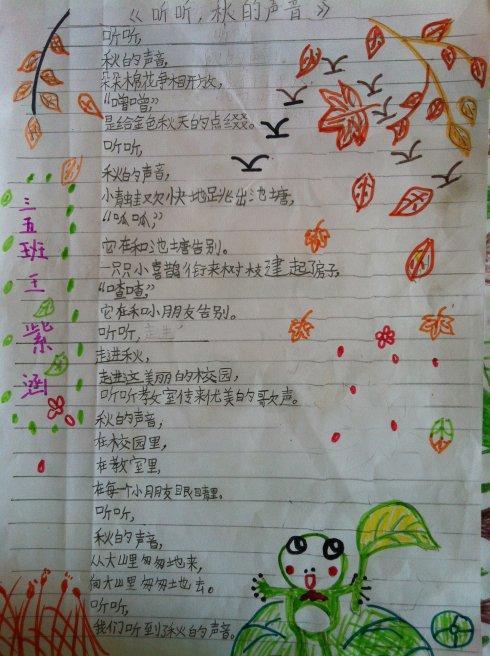 《听听，秋的声音》
听听，
秋的声音，
朵朵棉花争相开放，
“噌噌”
是给金色秋天的点缀。
听听，
秋的声音，
小青蛙欢快地跳出池塘，
“呱呱，”
它在和池塘告别。
一只只小喜鹊衔来树枝建起房子，
“喳喳，”
它在和小朋友告别。
听听，走进
走进秋，
走进这美丽的校园，
听听教室传来优美的歌声。
秋的声音，
在校园里，
在教室里，
在每一个小朋友眼睛里。
听听，
秋的声音，
从大山里匆匆地来，
向大山里匆匆地去。
听听，
我们听到了秋的声音。
三五班王紫涵